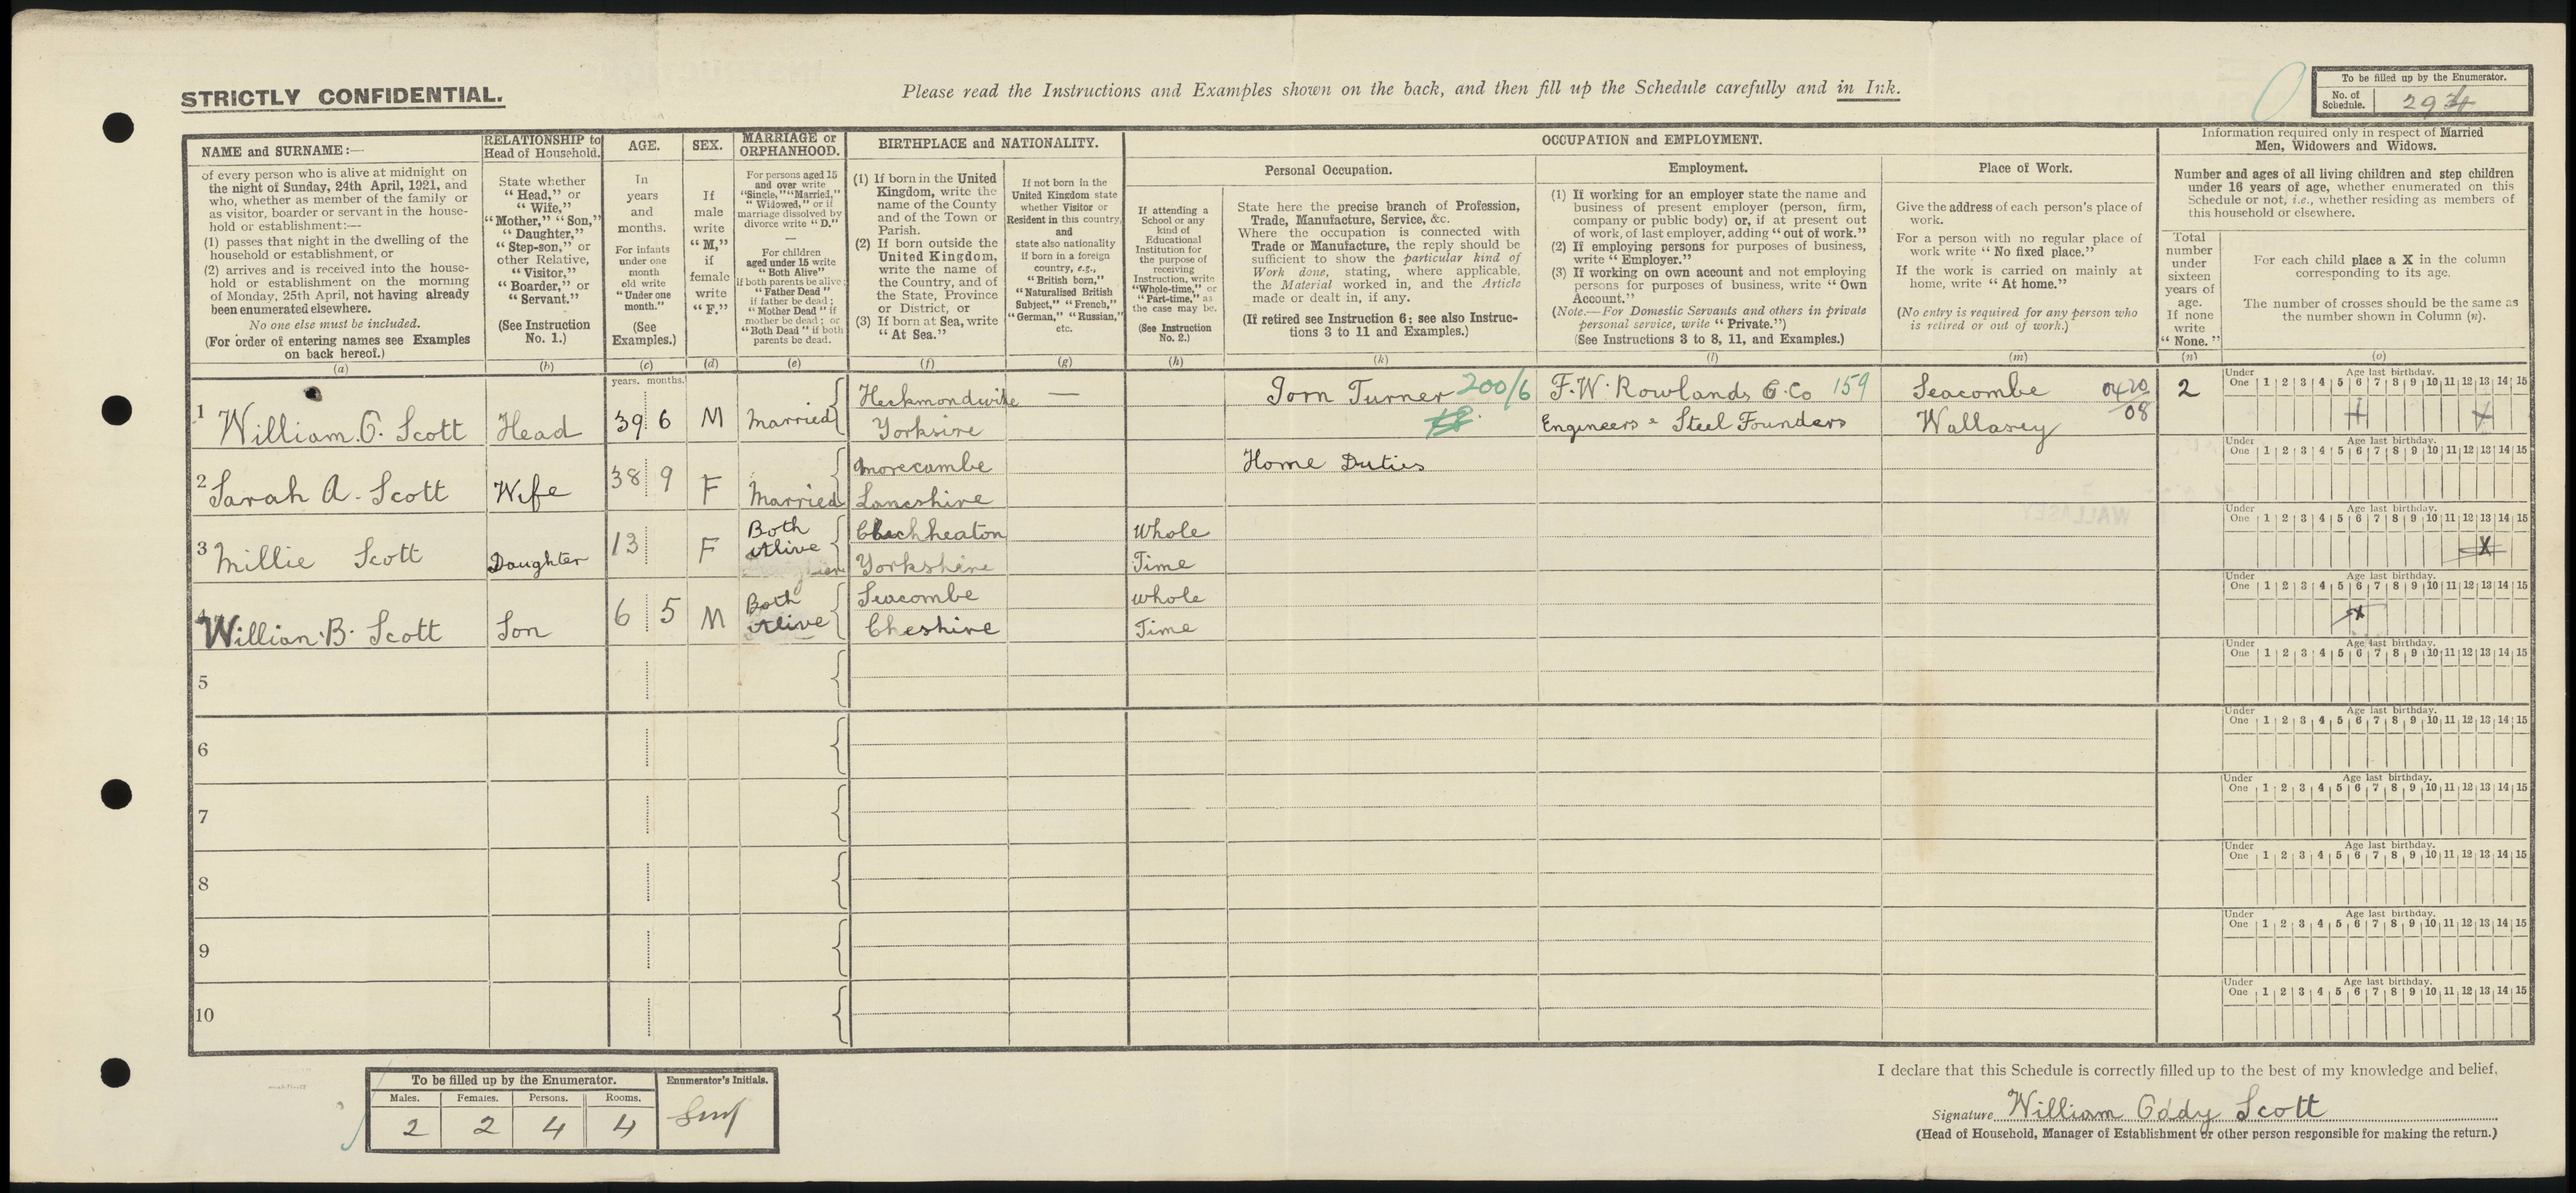 STRICTLY CONFIDENTIAL.
Please read the Instructions and Examples shown on the back, and then fill up the Schedule carefully and in Ink.
To be filled up by the Enumerator.
No. of Schedule. 294
NAME and SURNAME:—
of every person who is alive at midnight on
the night of Sunday, 24th April, 1921, and
who, whether as member of the family or
as visitor, boarder or servant in the house-
hold or establishment:—
(1) passes that night in the dwelling of the
household or establishment, or
(2) arrives and is received into the house-
hold or establishment on the morning
of Monday, 25th April, not having already
been enumerated elsewhere.
No one else must be included.
(For order of entering names see Examples
on back hereof.)
(a)
RELATIONSHIP to
Head of Household.
State whether
"Head," or
"Wife,"
"Mother," "Son,"
"Daughter,"
"Step-son," or
other Relative,
"Visitor,"
"Boarder," or
"Servant."
(See Instruction
No. 1.)
(b)
AGE.
In
years
and
months.
For infants
under one
month
old write
"Under one
month."
(See
Examples.)
(c)
SEX.
If
male
write
"M,"
if
female
write
"F."
(d)
MARRIAGE or
ORPHANHOOD.
For persons aged 15
and over write
"Single," "Married,"
"Widowed," or if
marriage dissolved by
divorce write "D."
—
For children
aged under 15 write
"Both Alive"
if both parents be alive;
"Father Dead"
if father be dead;
"Mother Dead" if
mother be dead; or
"Both Dead" if both
parents be dead.
(e)
BIRTHPLACE and NATIONALITY.
(1) If born in the United
Kingdom, write the
name of the County
and of the Town or
Parish.
(2) If born outside the
United Kingdom,
write the name of
the Country, and of
the State, Province
or District, or
(3) If born at Sea, write
"At Sea."
(f)
If not born in the
United Kingdom state
whether Visitor or
Resident in this country,
and
state also nationality
if born in a foreign
country, e.g.,
"British born,"
"Naturalised British
Subject," "French,"
"German," "Russian,"
etc.
(g)
OCCUPATION and EMPLOYMENT.
Personal Occupation.
If attending a
School or any
kind of
Educational
Institution for
the purpose of
receiving
Instruction, write
"Whole-time," or
"Part-time," as
the case may be.
(See Instruction
No. 2.)
(h)
State here the precise branch of Profession,
Trade, Manufacture, Service, &c.
Where the occupation is connected with
Trade or Manufacture, the reply should be
sufficient to show the particular kind of
Work done, stating, where applicable,
the Material worked in, and the Article
made or dealt in, if any.
(If retired see Instruction 6; see also Instruc-
tions 3 to 11 and Examples.)
(k)
Employment.
(1) If working for an employer state the name and
business of present employer (person, firm,
company or public body) or, if at present out
of work, of last employer, adding "out of work."
(2) If employing persons for purposes of business,
write "Employer."
(3) If working on own account and not employing
persons for purposes of business, write "Own
Account."
(Note.—For Domestic Servants and others in private
personal service, write "Private.")
(See Instructions 3 to 8, 11, and Examples.)
(l)
Place of Work.
Give the address of each person's place of
work.
For a person with no regular place of
work write "No fixed place."
If the work is carried on mainly at
home, write "At home."
(No entry is required for any person who
is retired or out of work.)
(m)
Information required only in respect of Married
Men, Widowers and Widows.
Number and ages of all living children and step children
under 16 years of age, whether enumerated on this
Schedule or not, i.e., whether residing as members of
this household or elsewhere.
Total
number
under
sixteen
years of
age.
If none
write
"None."
(n)
For each child place a X in the column
corresponding to its age.
The number of crosses should be the same as
the number shown in Column (n).
(o)
years. months.
1 William. O. Scott Head 39 6 M Married Heckmondwike Yorksire — Iorn Turner 200/6 F. W. Rowlands & Co 159 Engineers & Steel Founders Seacombe Wallasey 2
Under One 1 2 3 4 5 6 7 8 9 10 11 12 13 14 15
Age last birthday.
2 Sarah A. Scott Wife 38 9 F Married Morecambe Lancshire Home Duties
Under One 1 2 3 4 5 6 7 8 9 10 11 12 13 14 15
Age last birthday.
3 Millie Scott Daughter 13 F Both Alive Cleckheaton Yorkshire Whole Time X
Under One 1 2 3 4 5 6 7 8 9 10 11 12 13 14 15
Age last birthday.
4 Willian. B. Scott Son 6 5 M Both Alive Seacombe Cheshire Whole Time X
Under One 1 2 3 4 5 6 7 8 9 10 11 12 13 14 15
Age last birthday.
5
Under One 1 2 3 4 5 6 7 8 9 10 11 12 13 14 15
Age last birthday.
6
Under One 1 2 3 4 5 6 7 8 9 10 11 12 13 14 15
Age last birthday.
7
Under One 1 2 3 4 5 6 7 8 9 10 11 12 13 14 15
Age last birthday.
8
Under One 1 2 3 4 5 6 7 8 9 10 11 12 13 14 15
Age last birthday.
9
Under One 1 2 3 4 5 6 7 8 9 10 11 12 13 14 15
Age last birthday.
10
Under One 1 2 3 4 5 6 7 8 9 10 11 12 13 14 15
Age last birthday.
To be filled up by the Enumerator.
Enumerator's Initials.
Males. Females. Persons. Rooms.
2 2 4 4
I declare that this Schedule is correctly filled up to the best of my knowledge and belief,
Signature William Oddy Scott
(Head of Household, Manager of Establishment or other person responsible for making the return.)